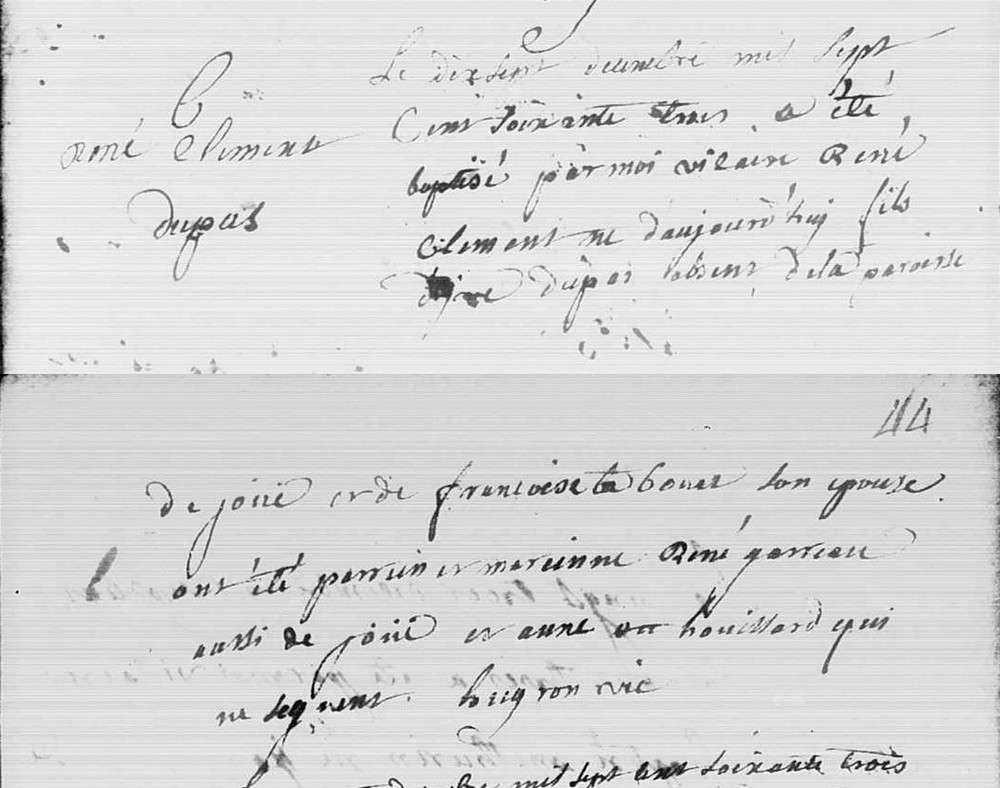 B
René Clement
dupas
Le dixsept decembre mil sept
Cent soixante trois a été
baptisé par moi vicaire René
Clement né daujourd'huy fils
dupas absent dela paroisse
44
De joüé et de francoise la bouer son epouse
ont été parrein et mareinne René garreau
aussi de joüé et anne houillard qui
ne signent. hugron vic
mil sept cent soixante trois